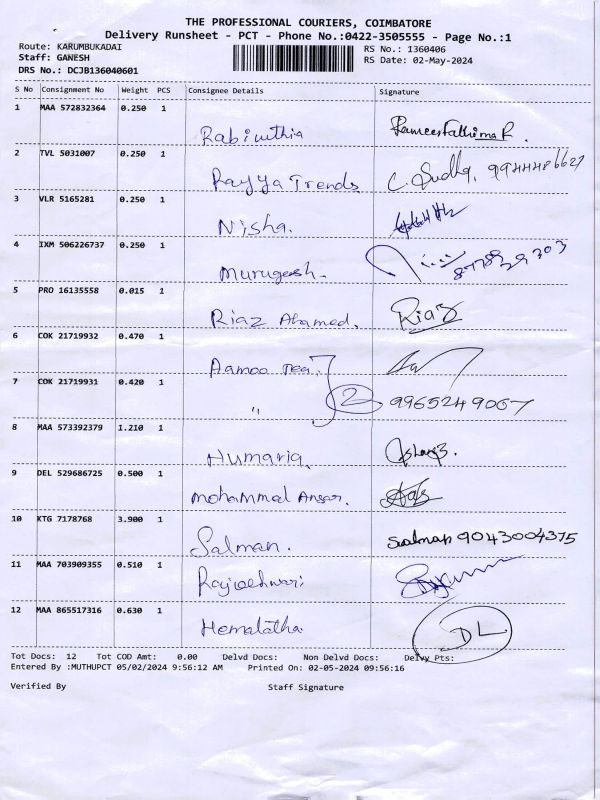 THE PROFESSIONAL COURIERS, COIMBATORE
Delivery Runsheet - PCT - Phone No.:0422-3505555 - Page No.:1
Route: KARUMBUKADAI RS No.: 1360406
Staff: GANESH RS Date: 02-May-2024
DRS No.: DCJB136040601
S No Consignment No Weight PCS Consignee Details Signature
1 MAA 572832364 0.250 1
2 TVL 5031007 0.250 1 Rayya Trends C. Sudha, 9944486627
3 VLR 5165281 0.250 1 Nisha.
4 IXM 506226737 0.250 1 Murugesh.
5 PRO 16135558 0.015 1 Riaz Ahamed. Riaz
6 COK 21719932 0.470 1 Aamoo Tea
7 COK 21719931 0.420 1 " 2 9965249067
8 MAA 573392379 1.210 1 Humaria.
9 DEL 529686725 0.500 1 Mohammad Ansar.
10 KTG 7178768 3.900 1 Salman. Salman 9043004375
11 MAA 703909355 0.510 1 Rajeshwari
12 MAA 865517316 0.630 1 Hemalatha DL
Tot Docs: 12 Tot COD Amt: 0.00 Delvd Docs: Non Delvd Docs: Delvy Pts:
Entered By :MUTHUPCT 05/02/2024 9:56:12 AM Printed On: 02-05-2024 09:56:16
Verified By Staff Signature